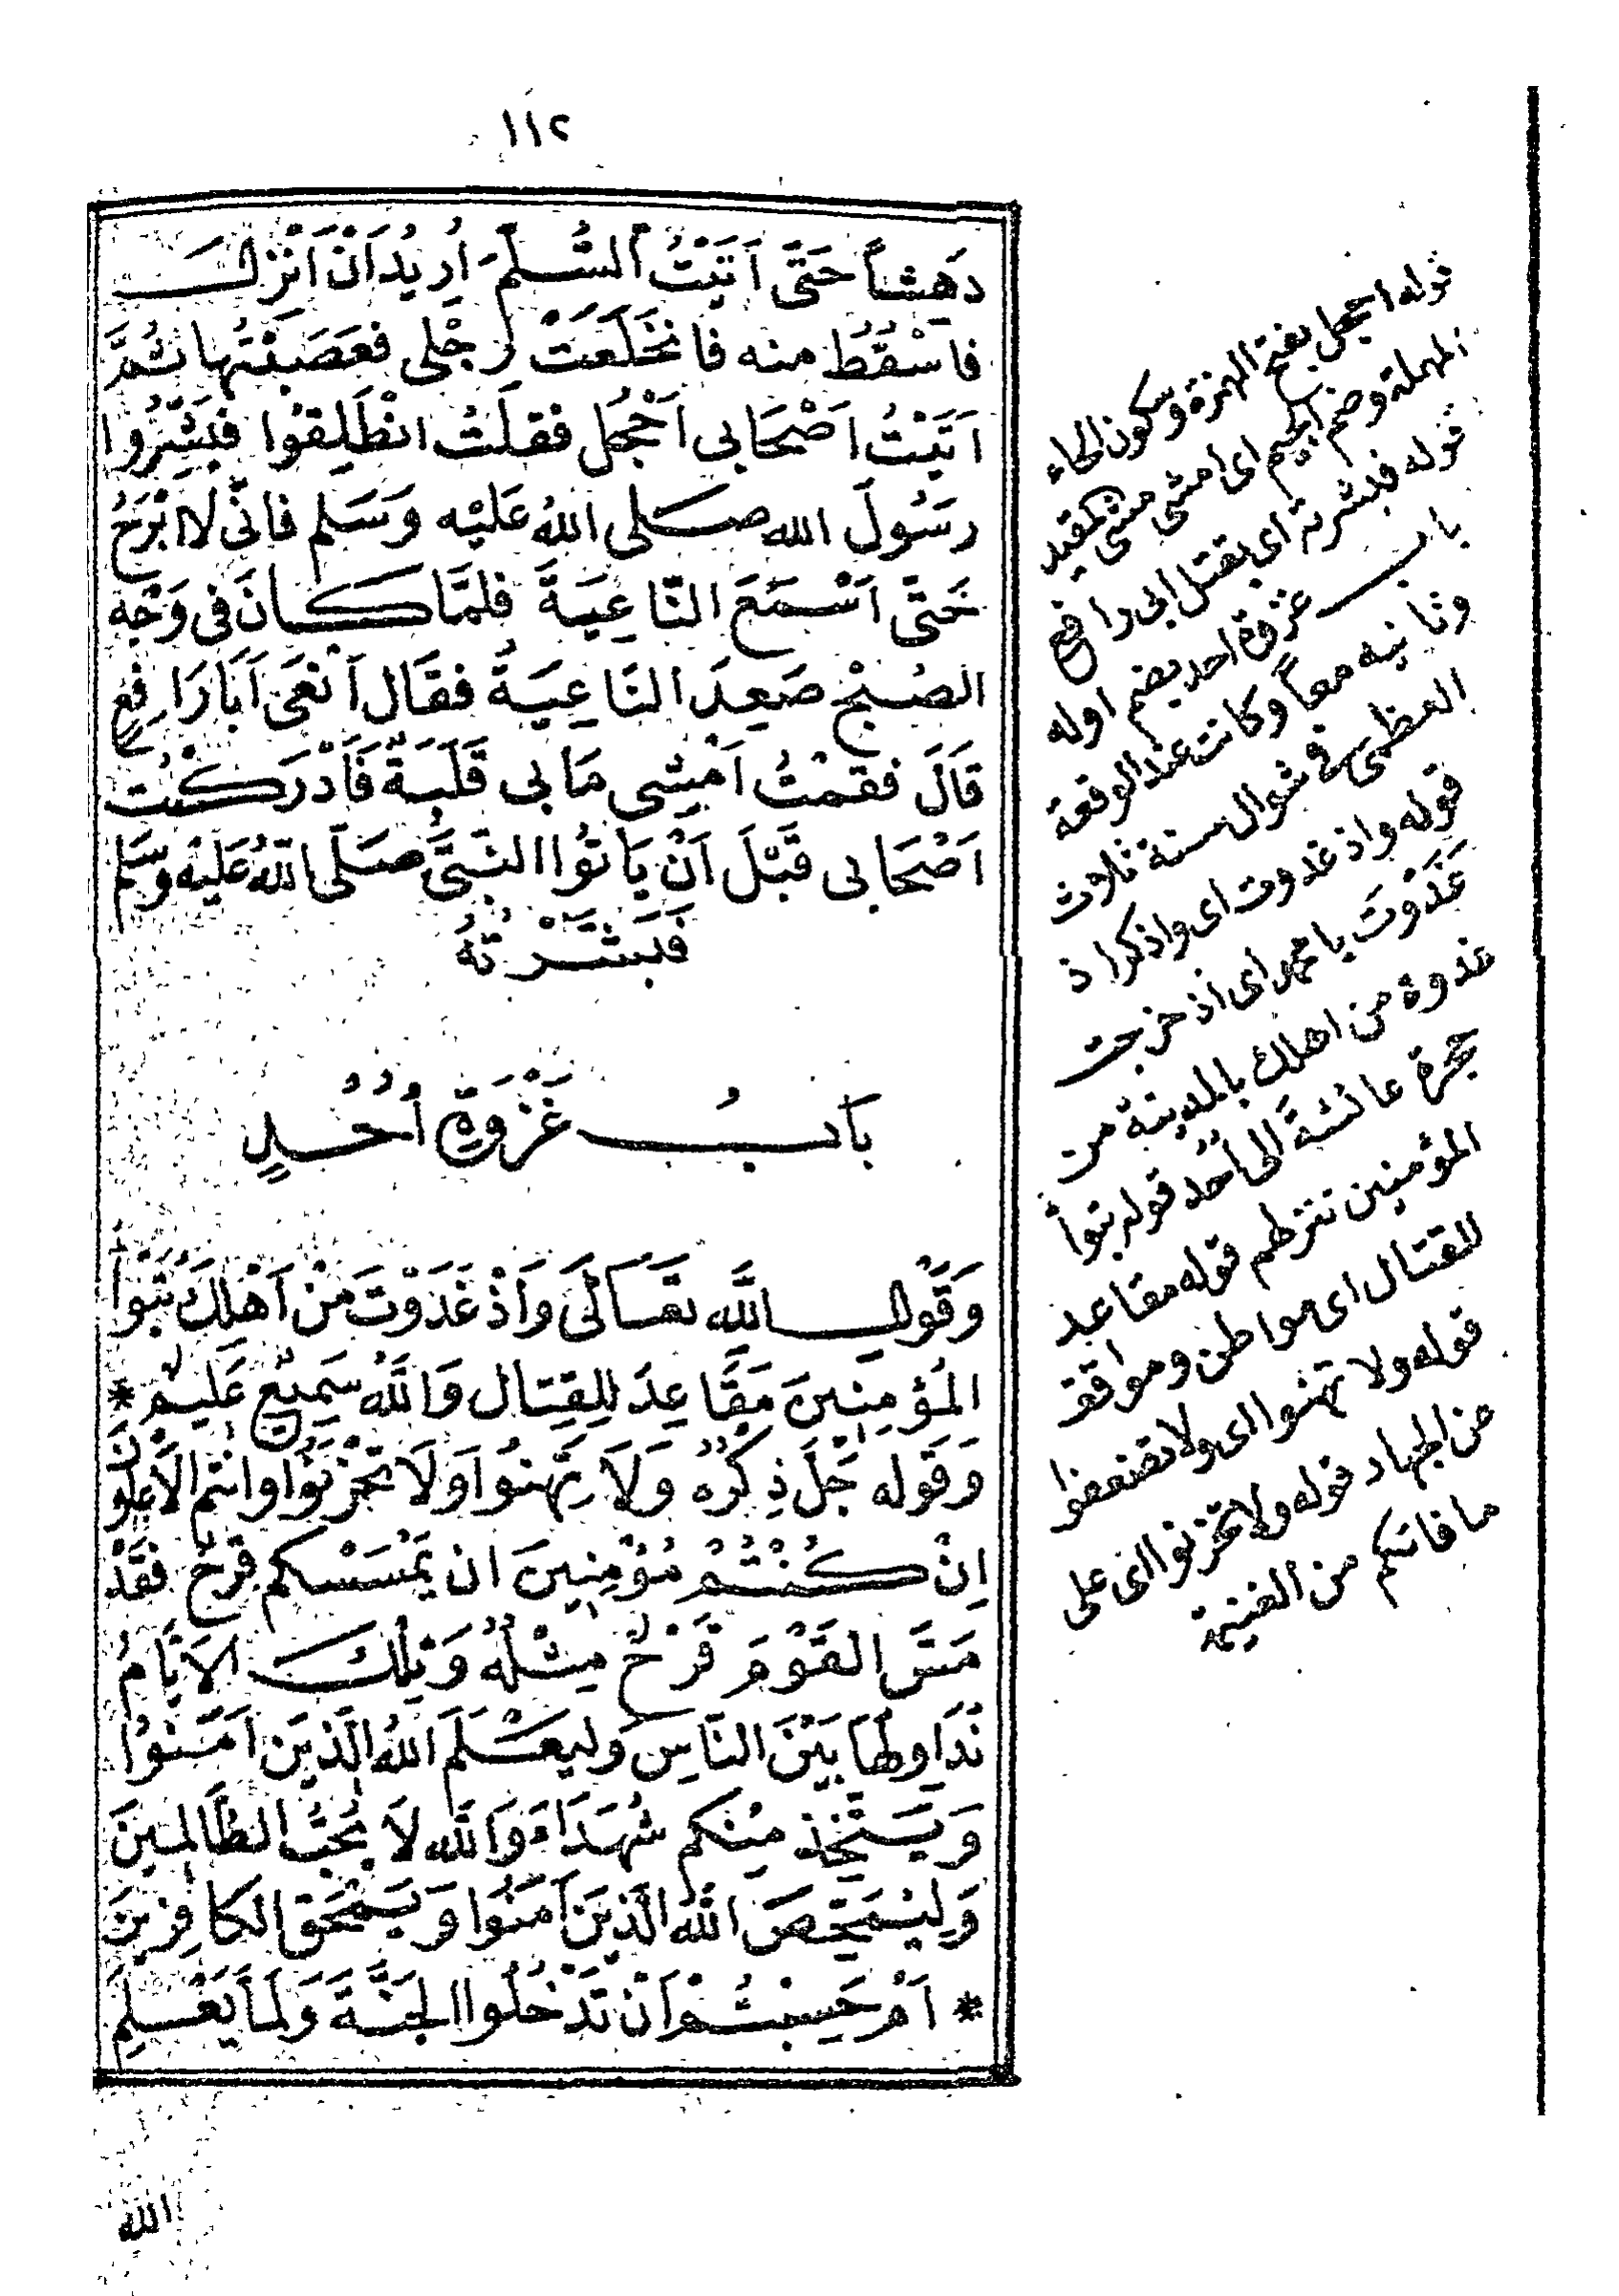 ١١٢
دَهِشاً حَتَّى اَتَيْتُ السُّلَّمَ اُرِيدُ اَنْ اَنْزِلَ
فاَسْقُطُ منه فانْخَلَعَتْ رِجْلى فعَصَبْتُها ثُمَّ
اَتَيْتُ اَصْحَابى اَحْجُل فقلْتُ انْطَلِقوُا فبَشِّرُوا
رسَوُلَ الله صَلى اللهُ عَليْه وَسَلم فانّى لا ابْرَحُ
حَتَّى اَسْمَعَ النَّاعِيَةَ فلمَّا كانَ فى وَجْه
الصُبْحِ صَعِدَ النَاعِيَةُ فقَال اَنْعَى اَبَا رَافِعٍ
قَالَ فقمْتُ اَمْشِى مَا بى قَلَبَةٌ فَاَدْرَكْتُ
اَصْحَابى قَبْلَ اَنْ يَاتوُا النبَّىَّ صَلّى اللهُ عَليْه وَسَّلم
فَبَشَّرْتهُ
بَابُ غَزْوَةِ اُحُدٍ
وَقَوْلِ اللَّه تعَالَى وَاَذْ غَدَوْتَ مَنْ اَهْلِكَ تُبَوِّأُ
المؤمِنِينَ مَقَاعِدَ لِلقِتال وَاللَّهُ سَمِيعٌ عَليمٌ *
وَقَوْله جَلّ ذِكْرُه وَلاَ تَهنوُا وَلَا تَحْزَنوُا وانتم الاَعْلَوْنَ
اِنْ كُنْتُمْ مُؤْمِنِينَ ان يَمْسَسْكم قَرْحٌ فقَدْ
مَسَّ القَوْمَ قَرْحٌ مِثْلهُ وَتِلْكَ الاَيَّامُ
نُدَاوِلهَا بَيْنَ النَّاسِ وَليَعْلَمَ اللهُ الَّذِينَ اَمَنوُا
وَيَتَّخِذ مِنْكم شُهَدَاءَ وَاَلله لاَ يُحِبُّ الظَّالمِينَ
وَلِيُمَحِّصَ الله الَّذِينَ اَمَنُوا وَيَمْحَق الكافِرِينَ
* اَمْ حَسِبْتُمْ اَنْ تَدْخُلوُا الجَنَّةَ وَلمَا يَعْلمِ
الله
قوله احجل بفتح الهمزة وسكون الحاء
المهملة وضم الجيم اى امشى مشى المقيد
قوله فبشرته اى بقتل ابى رافع
باب غزوة احد بضم اوله
وثانيه معاً وكانت عنده الوقعة
العظمى فى شوال سنة ثلاث
قوله واذ غدوت اى واذكر اذ
غَدَوْتَ يا محمد اى اذ خرجت
غدوة من اهلك بالمدينة من
حجرة عائشة الى اُحُد قوله تبوأ
المؤمنين تنزلهم قوله مقاعد
للقتال اى مواطن ومواقف
قوله ولا تهنوا اى ولا تضعفوا
من الجهاد قوله ولا تحزنوا اى على
ما فاتكم من الغنيمة